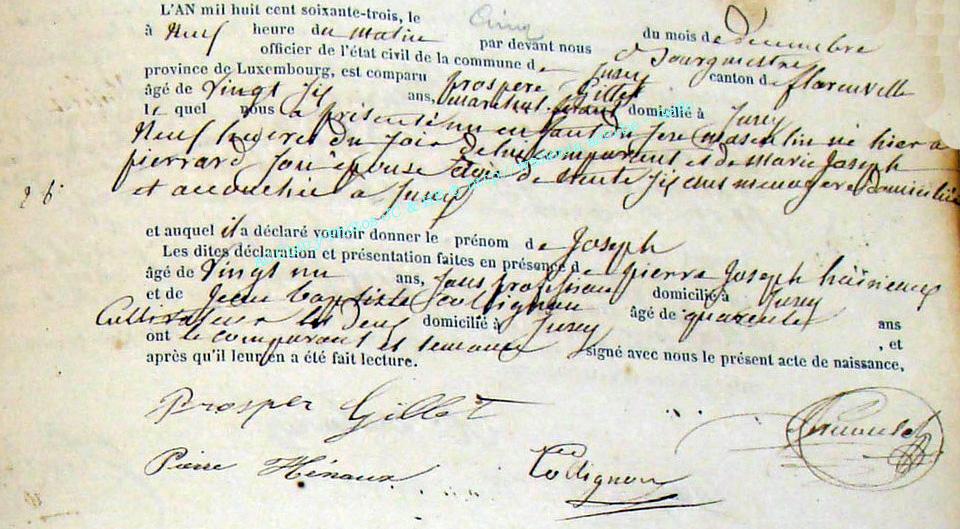 L'AN mil huit cent soixante-trois, le Cinq du mois de decembre
à Neuf heure du matin par devant nous Bourgmestre
officier de l'état civil de la commune de Jusey canton de florenville
province de Luxembourg, est comparu Prospere Gillet
âgé de vingt six ans, domicilié à Jusey
le quel nous a présenté un enfant du sexe masculin né hier à
Neuf heures du soir de lui comparant et de Marie Joseph
pierrard son épouse agée de trente six ans menagere domiciliée
26.
et accouchée a Jusey
et auquel il a déclaré vouloir donner le prénom de Joseph
Les dites déclaration et présentation faites en présence de pierre Joseph
âgé de vingt un ans, sans profession domicilié à Jusey
et de Jean Baptiste Collignon âgé de quarente ans
Cultivateur les deux domicilié à Jusey , et
ont le comparant et temoins signé avec nous le présent acte de naissance,
après qu'il leur en a été fait lecture.
Prosper Gillet
Pierre Hénaux Collignon